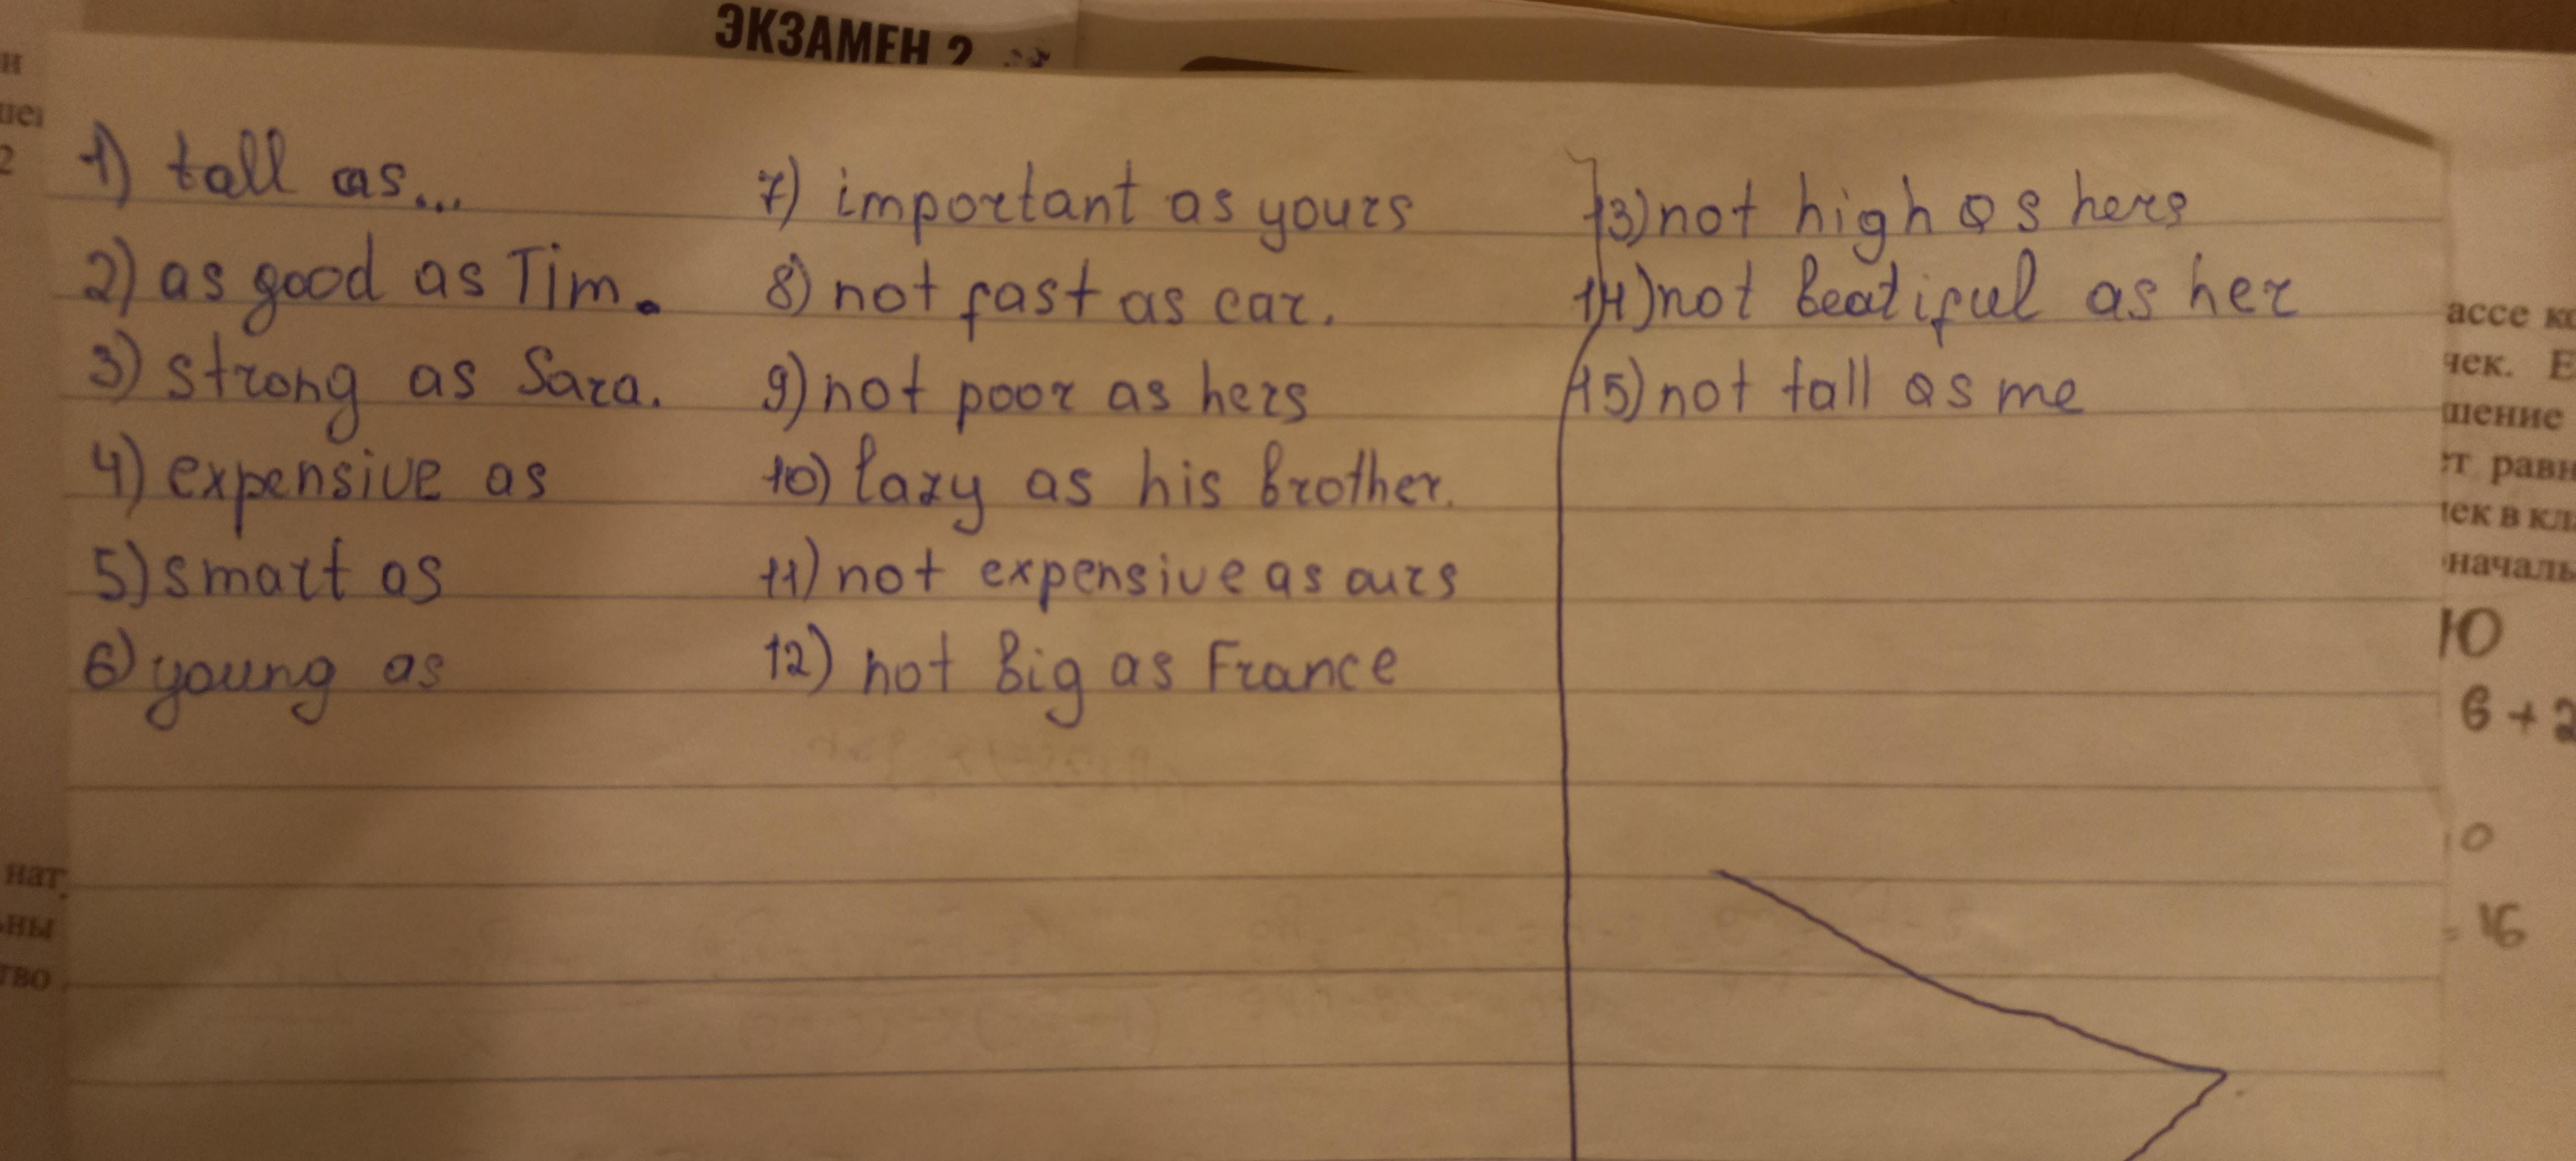 ЭКЗАМЕН 2
1) tall as...
2) as good as Tim.
3) strong as Sara.
4) expensive as
5) smart as
6) young as
7) important as yours
8) not fast as car.
9) not poor as hers
10) lazy as his brother.
11) not expensive as ours
12) not big as France
13) not high as hers
14) not beatiful as her
15) not tall as me
и
2
нат
ьны
тво
ассе
чек. Е
шение
ет равн
чек в кл
началь
10
6 + 2
0
= 16